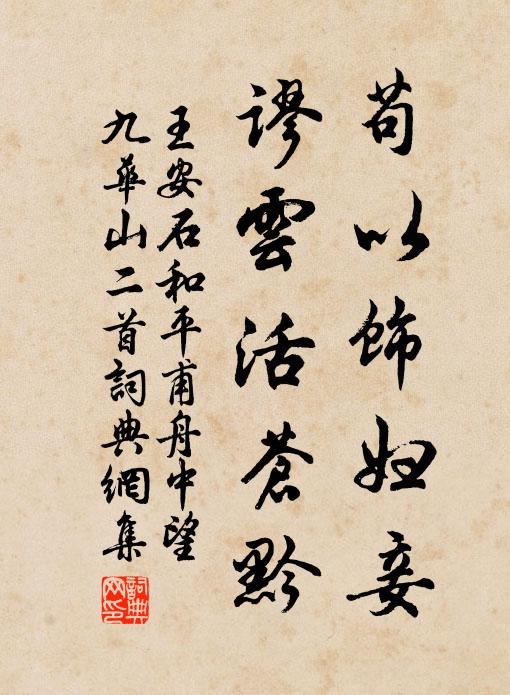 苟以飾妇妾
謬雲活蒼黔
王安石和平甫舟中望
九華山二首詞典網集
詞典網印